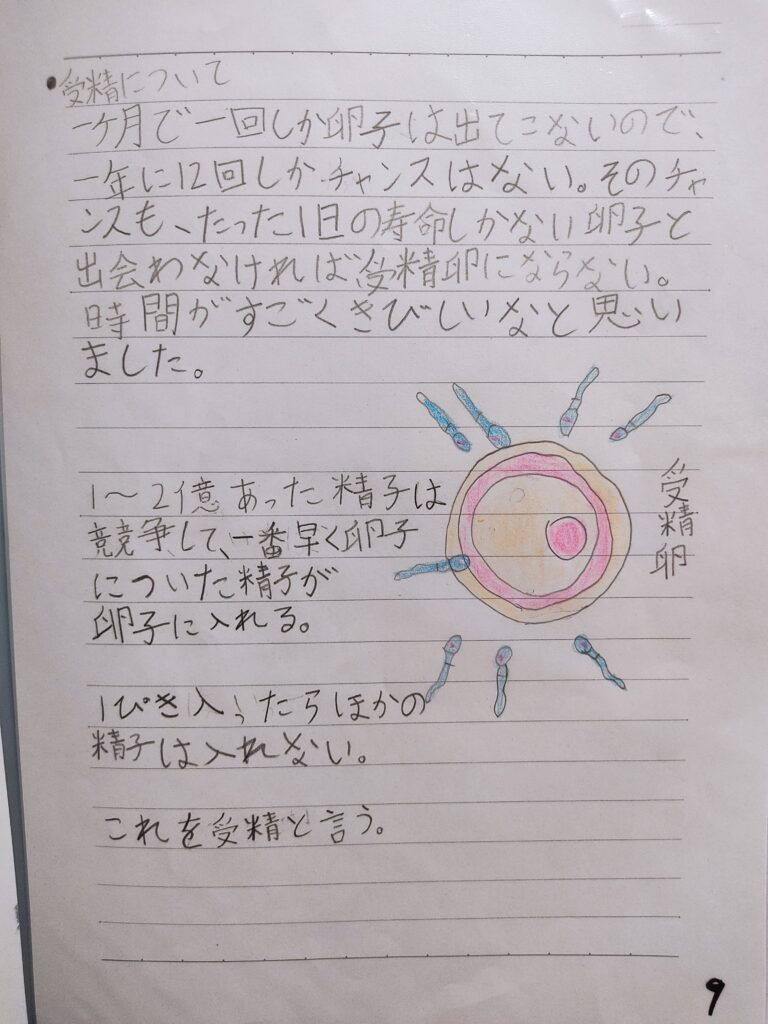 ・受精について
一ケ月で一回しか卵子は出てこないので、
一年に12回しかチャンスはない。そのチャ
ンスも、たった1日の寿命しかない卵子と
出会わなければ受精卵にならない。
時間がすごくきびしいなと思い
ました。
1～2億あった精子は
競争して、一番早く卵子
についた精子が
卵子に入れる。
受精卵
1ぴき入ったらほかの
精子は入れない。
これを受精と言う。
9